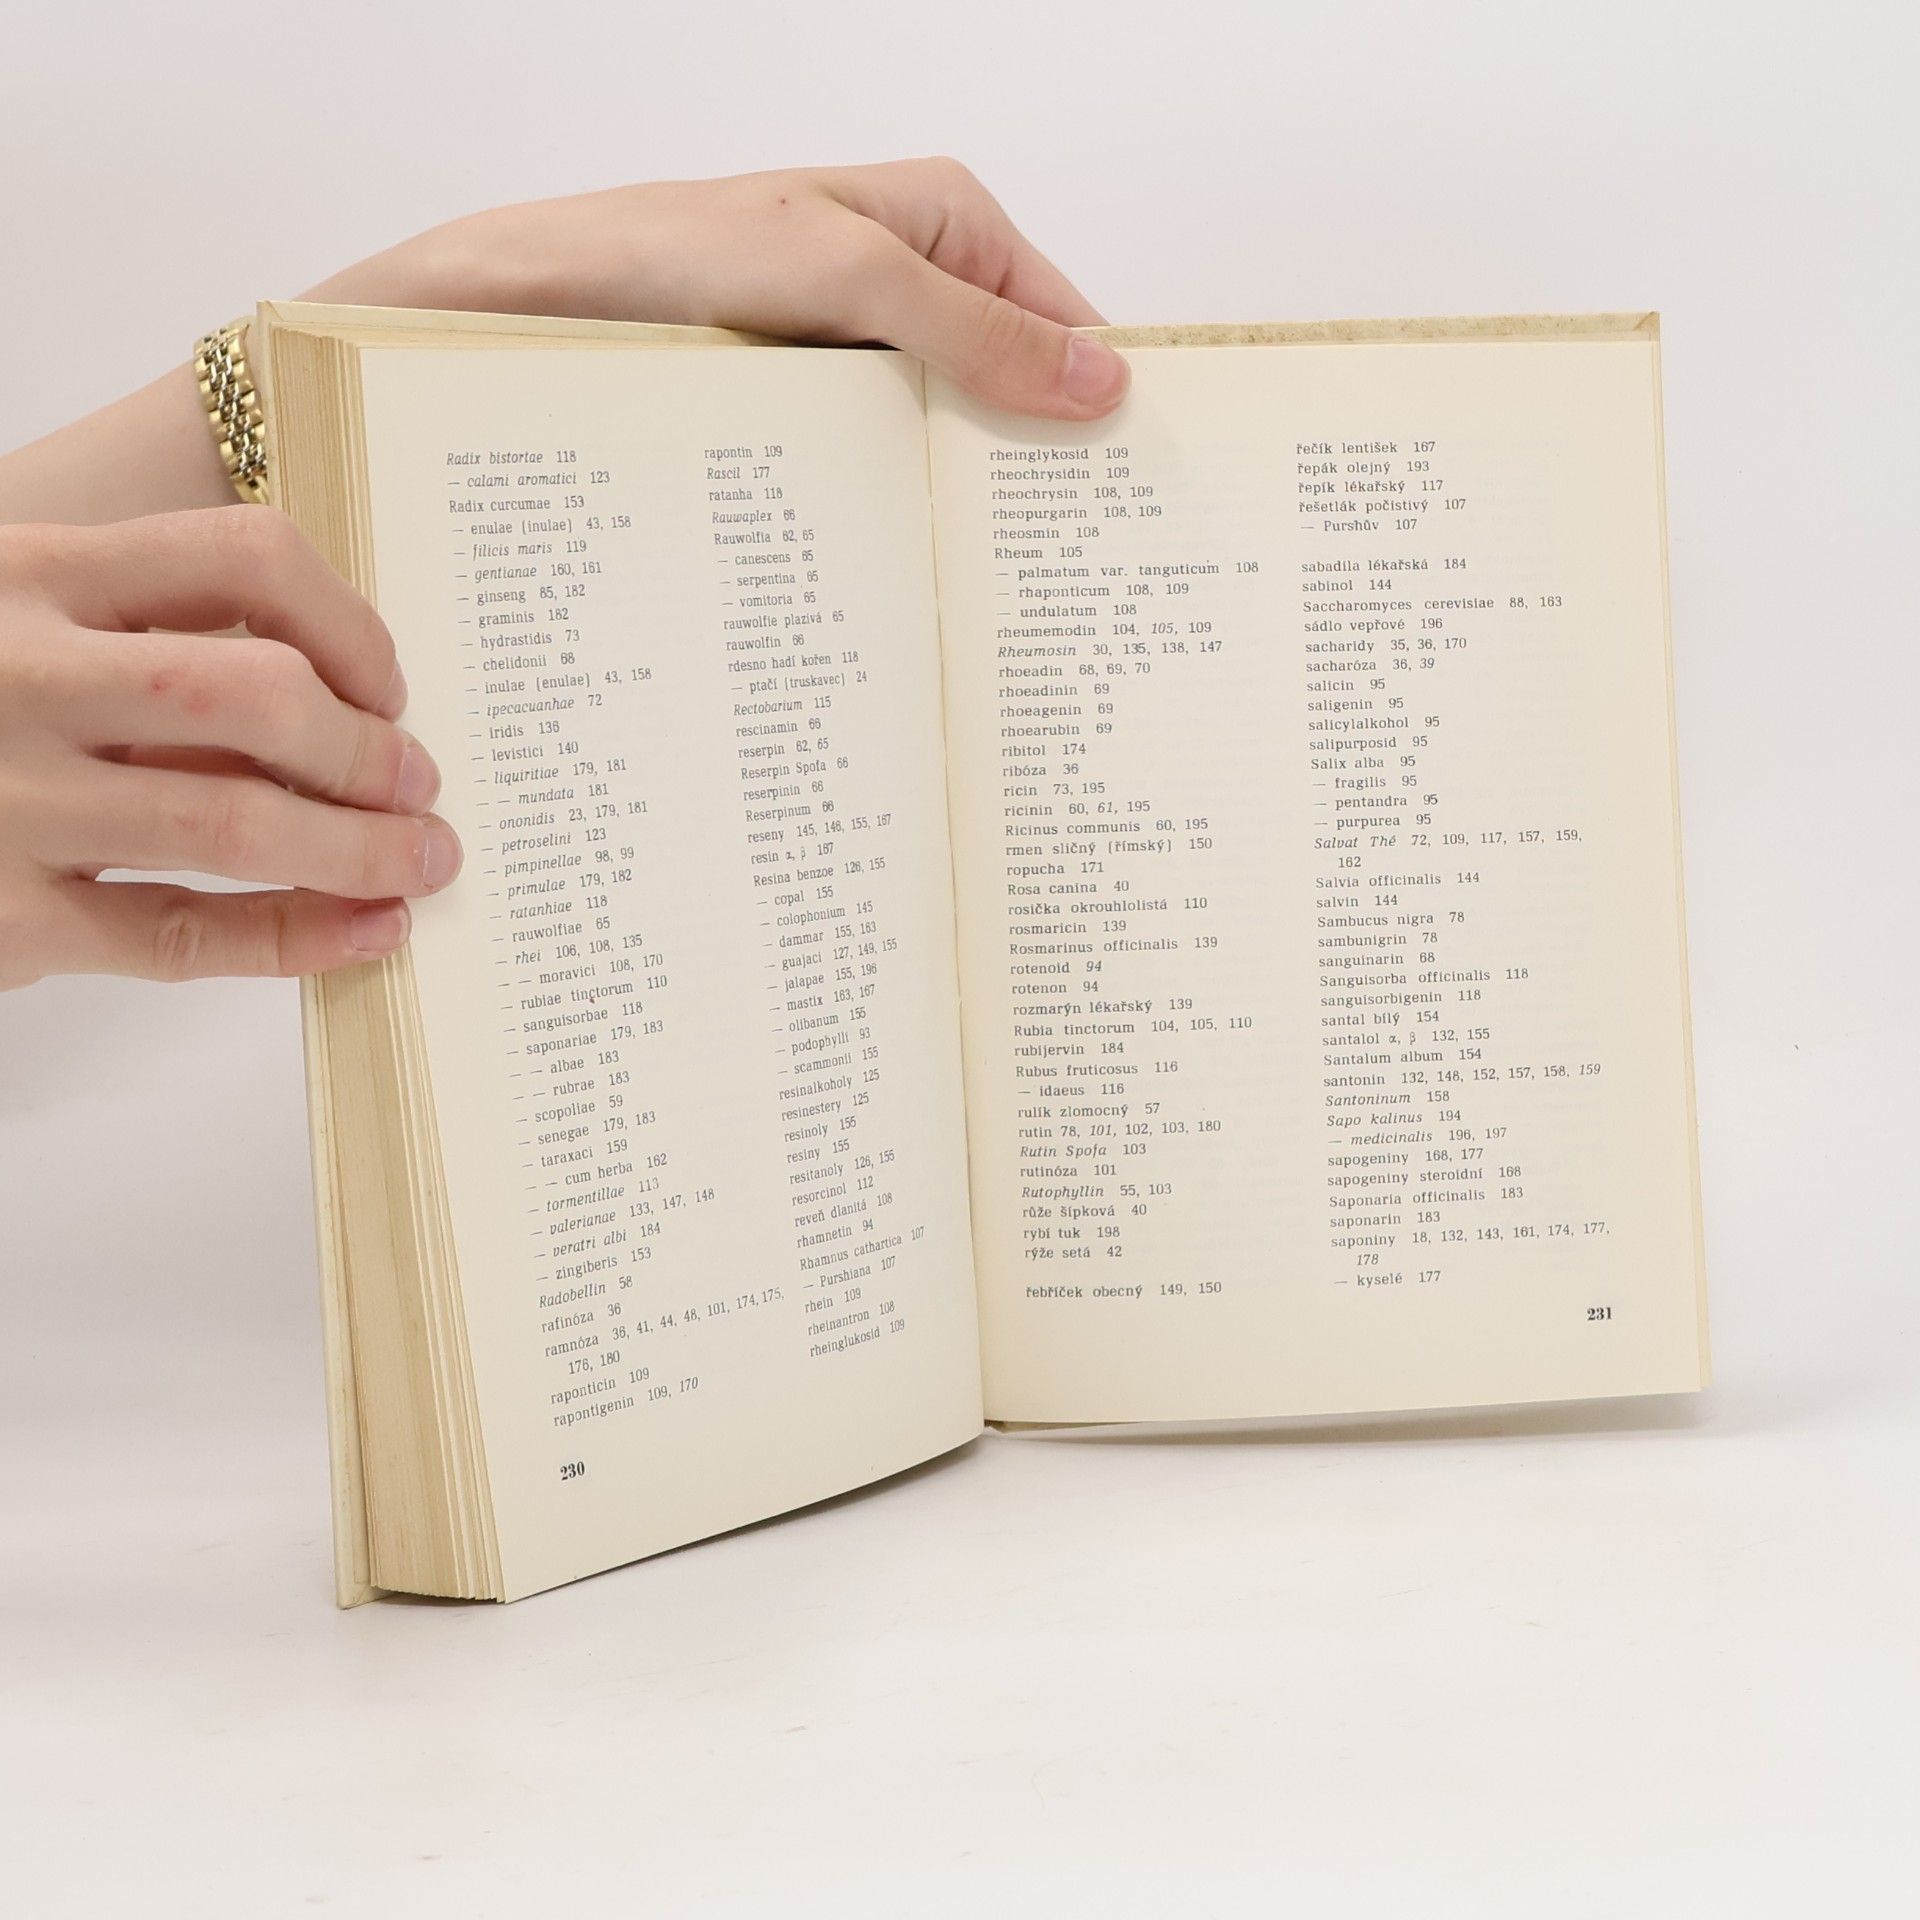 Radix bistortae 118
— calami aromatici 123
Radix curcumae 153
— enulae (inulae) 43, 158
— filicis maris 119
— gentianae 160, 161
— ginseng 85, 182
— graminis 182
— hydrastidis 73
— chelidonii 68
— inulae (enulae) 43, 158
— ipecacuanhae 72
— iridis 136
— levistici 140
— liquiritiae 179, 181
— — mundata 181
— ononidis 23, 179, 181
— petroselini 123
— pimpinellae 98, 99
— primulae 179, 182
— ratanhiae 118
— rauwolfiae 65
— rhei 106, 108, 135
— — moravici 108, 170
— rubiae tinctorum 110
— sanguisorbae 118
— saponariae 179, 183
— — albae 183
— — rubrae 183
— scopoliae 59
— senegae 179, 183
— taraxaci 159
— — cum herba 162
— tormentillae 113
— valerianae 133, 147, 148
— veratri albi 184
— zingiberis 153
Radobellin 58
rafinóza 36
ramnóza 36, 41, 44, 48, 101, 174, 175,
176, 180
raponticin 109
rapontigenin 109, 170
rapontin 109
Rascil 177
ratanha 118
Rauwaplex 66
Rauwolfia 62, 65
— canescens 65
— serpentina 65
— vomitoria 65
rauwolfie plazivá 65
rauwolfin 66
rdesno hadí kořen 118
— ptačí (truskavec) 24
Rectobarium 115
rescinamin 66
reserpin 62, 65
Reserpin Spofa 66
reserpinin 66
Reserpinum 66
reseny 145, 146, 155, 167
resin α, β 167
Resina benzoe 126, 155
— copal 155
— colophonium 145
— dammar 155, 163
— guajaci 127, 149, 155
— jalapae 155, 196
— mastix 163, 167
— olibanum 155
— podophylli 93
— scammonii 155
resinalkoholy 125
resinestery 125
resinoly 155
resiny 155
resitanoly 126, 155
resorcinol 112
reveň dlanitá 108
rhamnetin 94
Rhamnus cathartica 107
— Purshiana 107
rhein 109
rheinantron 108
rheinglukosid 109
230
rheinglykosid 109
rheochrysidin 109
rheochrysin 108, 109
rheopurgarin 108, 109
rheosmin 108
Rheum 105
— palmatum var. tanguticum 108
— rhaponticum 108, 109
— undulatum 108
rheumemodin 104, 105, 109
Rheumosin 30, 135, 138, 147
rhoeadin 68, 69, 70
rhoeadinin 69
rhoeagenin 69
rhoearubin 69
ribitol 174
ribóza 36
ricin 73, 195
ricinin 60, 61, 195
Ricinus communis 60, 195
rmen sličný (římský) 150
ropucha 171
Rosa canina 40
rosička okrouhlolistá 110
rosmaricin 139
Rosmarinus officinalis 139
rotenoid 94
rotenon 94
rozmarýn lékařský 139
Rubia tinctorum 104, 105, 110
rubijervin 184
Rubus fruticosus 116
— idaeus 116
rulík zlomocný 57
rutin 78, 101, 102, 103, 180
Rutin Spofa 103
rutinóza 101
Rutophyllin 55, 103
růže šípková 40
rybí tuk 198
rýže setá 42
řebříček obecný 149, 150
řečík lentišek 167
řepák olejný 193
řepík lékařský 117
řešetlák počistivý 107
— Purshův 107
sabadila lékařská 184
sabinol 144
Saccharomyces cerevisiae 88, 163
sádlo vepřové 196
sacharidy 35, 36, 170
sacharóza 36, 39
salicin 95
saligenin 95
salicylalkohol 95
salipurposid 95
Salix alba 95
— fragilis 95
— pentandra 95
— purpurea 95
Salvat Thé 72, 109, 117, 157, 159,
162
Salvia officinalis 144
salvin 144
Sambucus nigra 78
sambunigrin 78
sanguinarin 68
Sanguisorba officinalis 118
sanguisorbigenin 118
santal bílý 154
santalol α, β 132, 155
Santalum album 154
santonin 132, 148, 152, 157, 158, 159
Santoninum 158
Sapo kalinus 194
— medicinalis 196, 197
sapogeniny 168, 177
sapogeniny steroidní 168
Saponaria officinalis 183
saponarin 183
saponiny 18, 132, 143, 161, 174, 177,
178
— kyselé 177
231